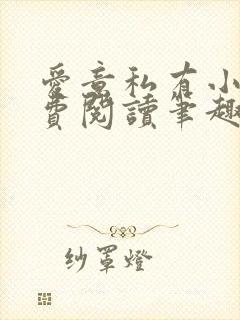 愛意私有小
費閱讀筆趣
紗罩燈